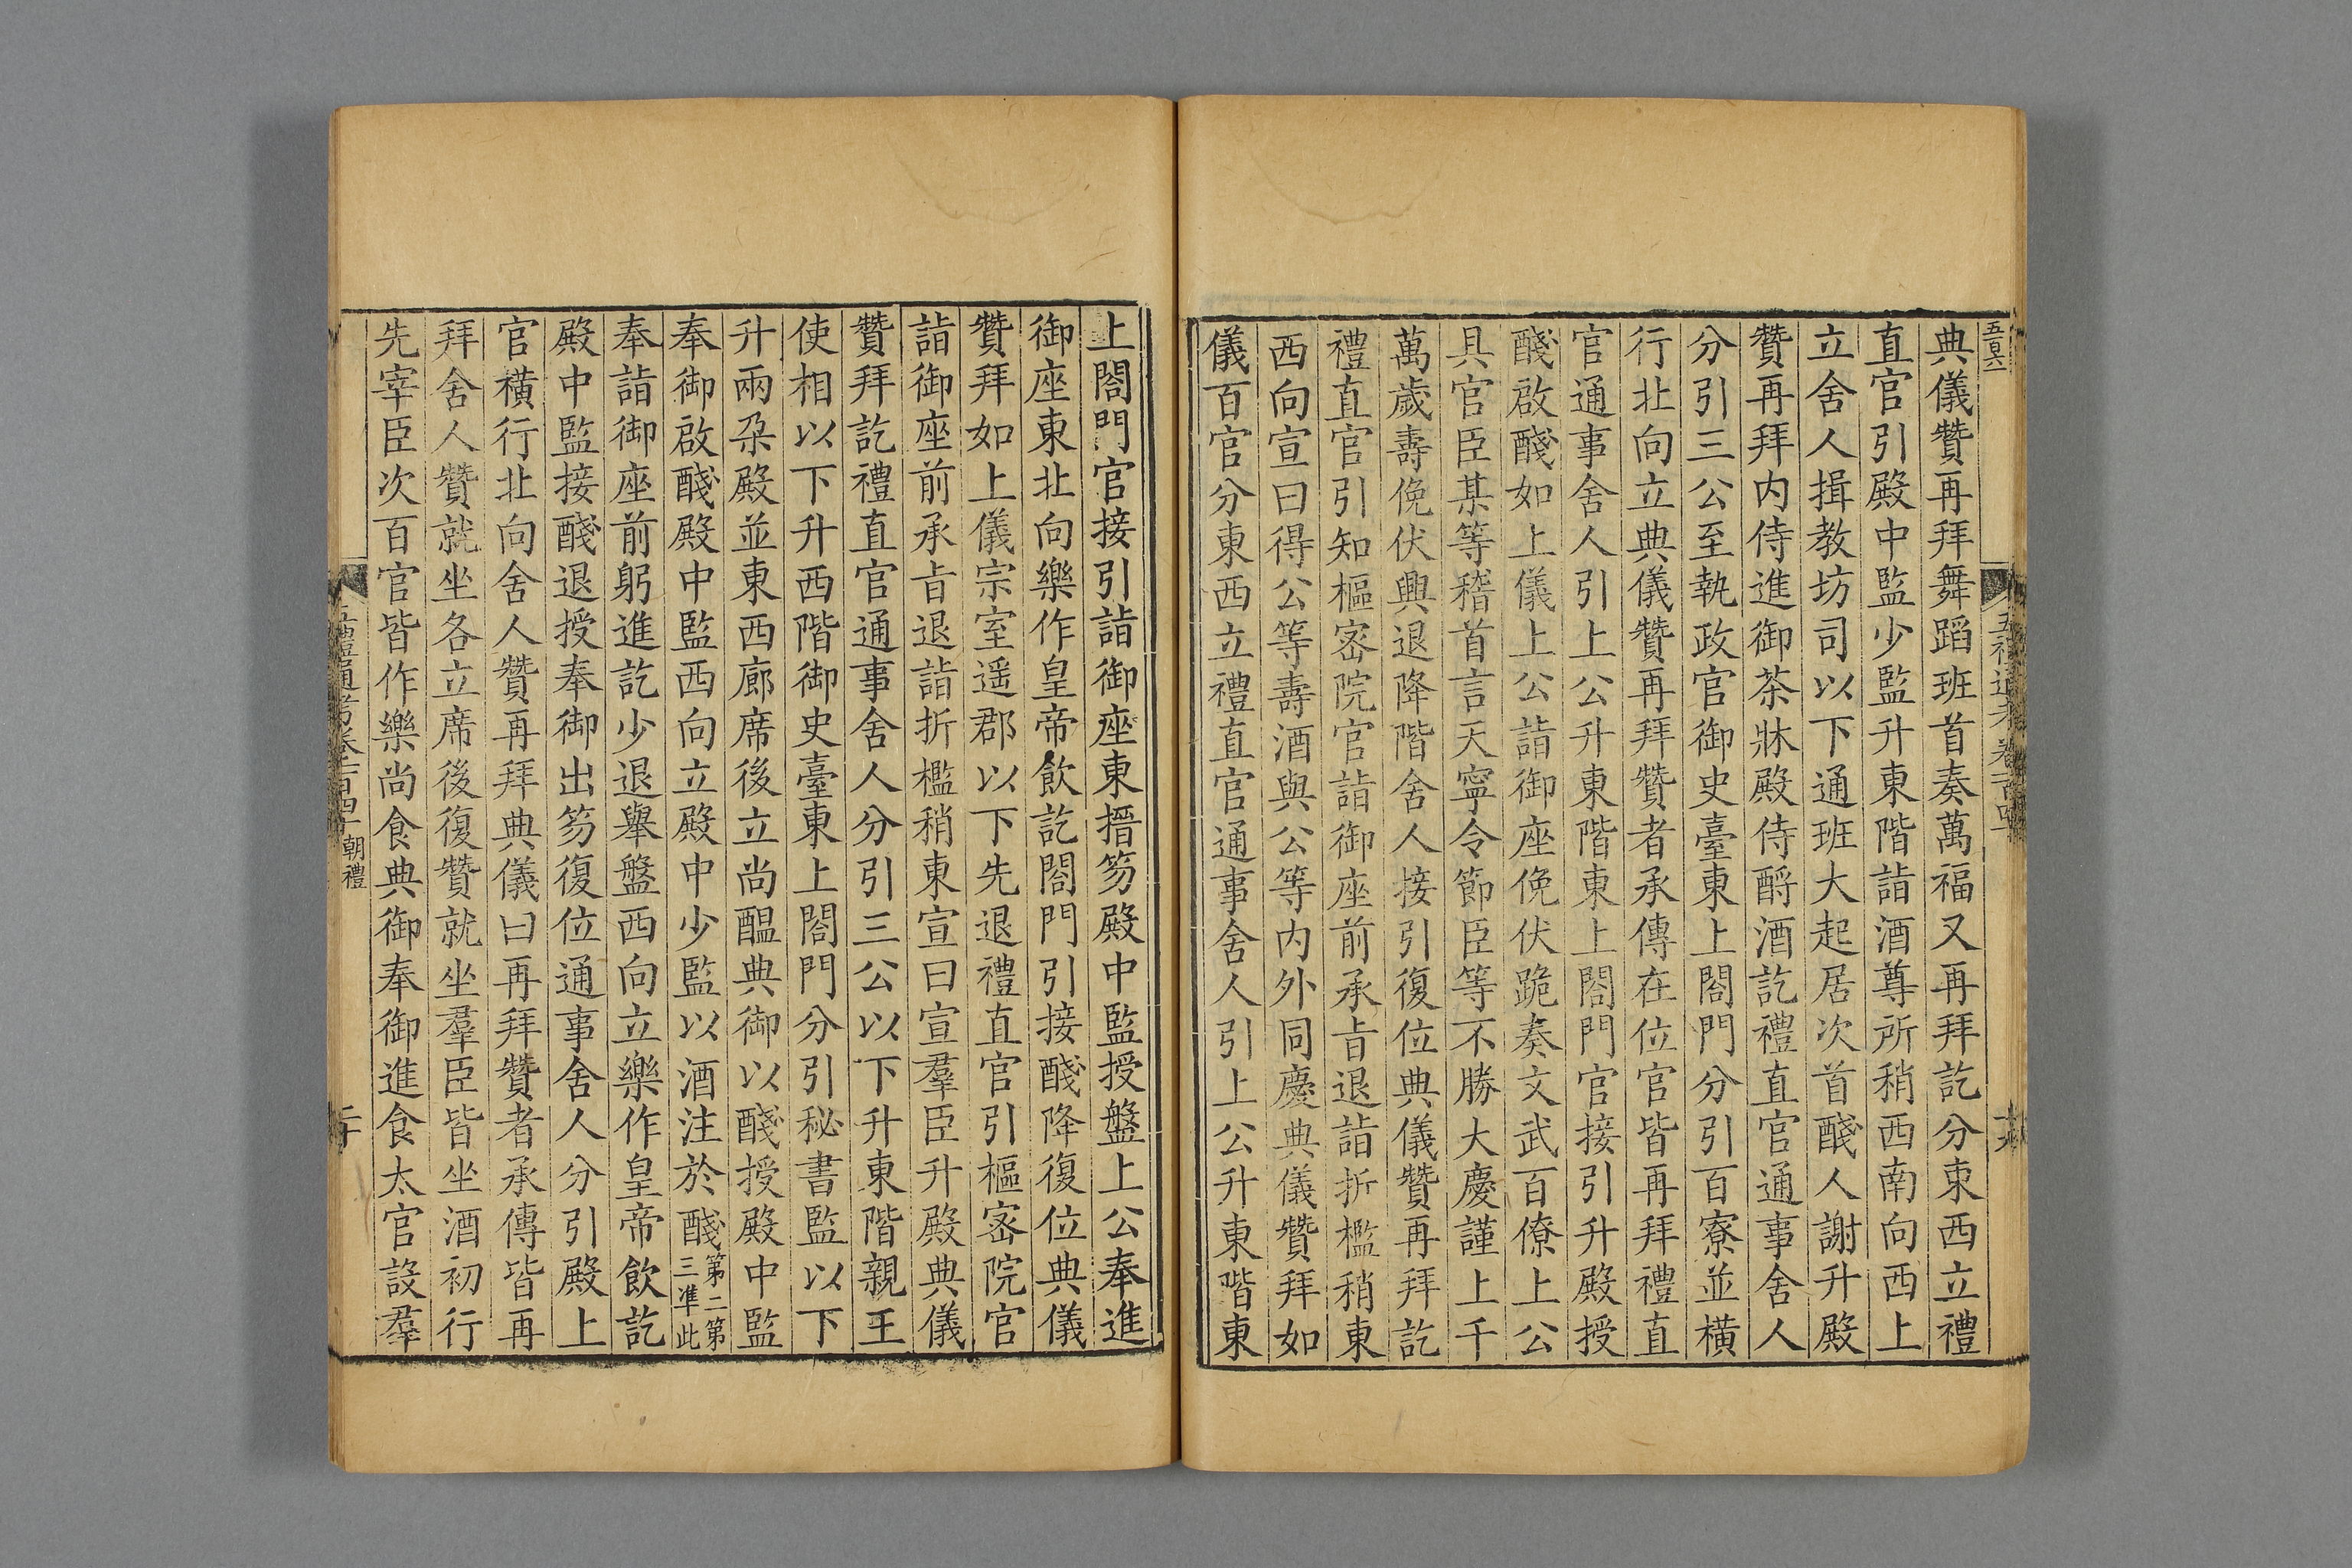 典儀贊再拜舞蹈班首奏萬福又再拜訖分東西立禮
直官引殿中監少監升東階詣酒尊所稍西南向西上
立舍人揖教坊司以下通班大起居次首醆人謝升殿
贊再拜内侍進御茶牀殿侍酹酒訖禮直官通事舍人
分引三公至執政官御史臺東上閤門分引百寮並橫
行北向立典儀贊再拜贊者承傳在位官皆再拜禮直
官通事舍人引上公升東階東上閤門官接引升殿授
醆啟醆如上儀上公詣御座俛伏跪奏文武百僚上公
具官臣某等稽首言天寧令節臣等不勝大慶謹上千
萬歲壽俛伏興退降階舍人接引復位典儀贊再拜訖
禮直官引知樞密院官詣御座前承旨退詣折檻稍東
西向宣曰得公等壽酒與公等内外同慶典儀贊拜如
儀百官分東西立禮直官通事舍人引上公升東階東
上閤門官接引詣御座東搢笏殿中監授盤上公奉進
御座東北向樂作皇帝飲訖閤門引接醆降復位典儀
贊拜如上儀宗室遥郡以下先退禮直官引樞密院官
詣御座前承旨退詣折檻稍東宣曰宣羣臣升殿典儀
贊拜訖禮直官通事舍人分引三公以下升東階親王
使相以下升西階御史臺東上閤門分引秘書監以下
升兩朶殿並東西廊席後立尚醞典御以醆授殿中監
奉御啟醆殿中監西向立殿中少監以酒注於醆第二第三準此
奉詣御座前躬進訖少退舉盤西向立樂作皇帝飲訖
殿中監接醆退授奉御出笏復位通事舍人分引殿上
官橫行北向舍人贊再拜典儀曰再拜贊者承傳皆再
拜舍人贊就坐各立席後復贊就坐羣臣皆坐酒初行
先宰臣次百官皆作樂尚食典御奉御進食太官設羣
朝禮